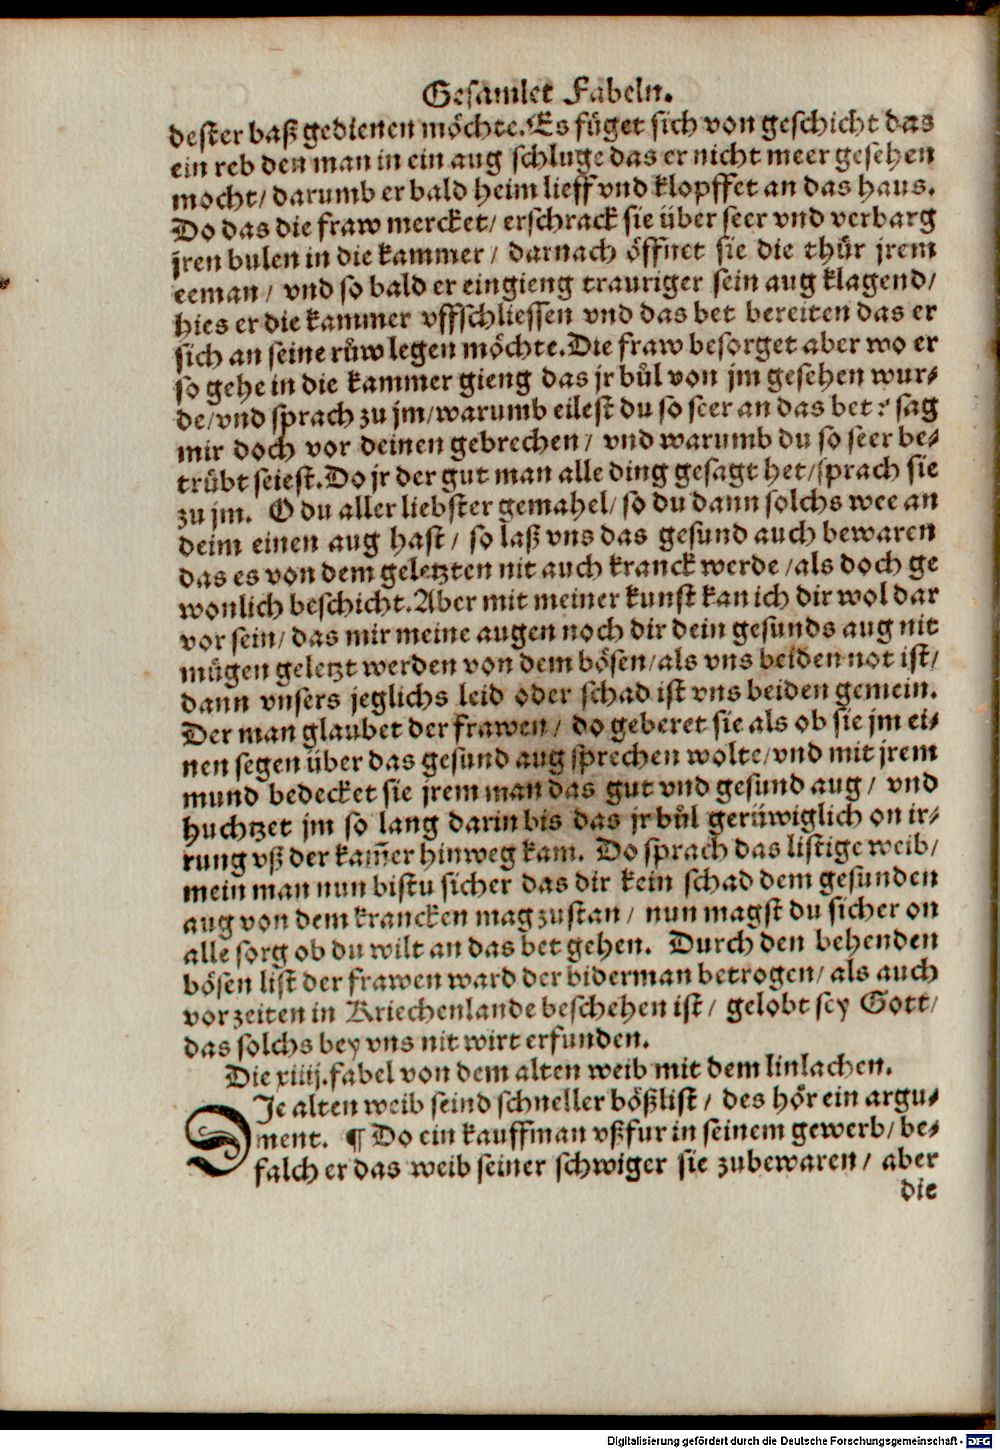 Gesamlet Fabeln.
dester baß gedienen möchte. Es füget sich von geschicht das
ein reb den man in ein aug schluge das er nicht meer gesehen
mocht/ darumb er bald heim lieff vnd klopffet an das haus.
Do das die fraw mercket/ erschrack sie über seer vnd verbarg
jren bulen in die kammer/ darnach öffnet sie die thür jrem
eeman/ vnd so bald er eingieng trauriger sein aug klagend/
hies er die kammer vffschliessen vnd das bet bereiten das er
sich an seine růw legen möchte. Die fraw besorget aber wo er
so gehe in die kammer gieng das jr bůl von jm gesehen wur⸗
de/ vnd sprach zu jm/ warumb eilest du so seer an das bet? sag
mir doch vor deinen gebrechen/ vnd warumb du so seer be⸗
trübt seiest. Do jr der gut man alle ding gesagt het/ sprach sie
zu jm. O du aller liebster gemahel/ so du dann solchs wee an
deim einen aug hast/ so laß vns das gesund auch bewaren
das es von dem geletzten nit auch kranck werde/ als doch ge
wonlich beschicht. Aber mit meiner kunst kan ich dir wol dar
vor sein/ das mir meine augen noch dir dein gesunds aug nit
mügen geletzt werden von dem bösen/ als vns beiden not ist/
dann vnsers jeglichs leid oder schad ist vns beiden gemein.
Der man glaubet der frawen/ do geberet sie als ob sie jm ei⸗
nen segen über das gesund aug sprechen wolte/ vnd mit jrem
mund bedecket sie jrem man das gut vnd gesund aug/ vnd
huchtzet jm so lang darin bis das jr bůl gerüwiglich on ir⸗
rung vß der kam̃er hinweg kam. Do sprach das listige weib/
mein man nun bistu sicher das dir kein schad dem gesunden
aug von dem krancken mag zustan/ nun magst du sicher on
alle sorg ob du wilt an das bet gehen. Durch den behenden
bösen list der frawen ward der biderman betrogen/ als auch
vor zeiten in Kriechenlande beschehen ist/ gelobt sey Gott/
das solchs bey vns nit wirt erfunden.
Die xiiij. fabel von dem alten weib mit dem linlachen.
DIe alten weib seind schneller bößlist/ des hör ein argu⸗
ment. ¶ Do ein kauffman vßfur in seinem gewerb/ be⸗
falch er das weib seiner schwiger sie zubewaren/ aber
die
Digitalisierung gefördert durch die Deutsche Forschungsgemeinschaft - DFG